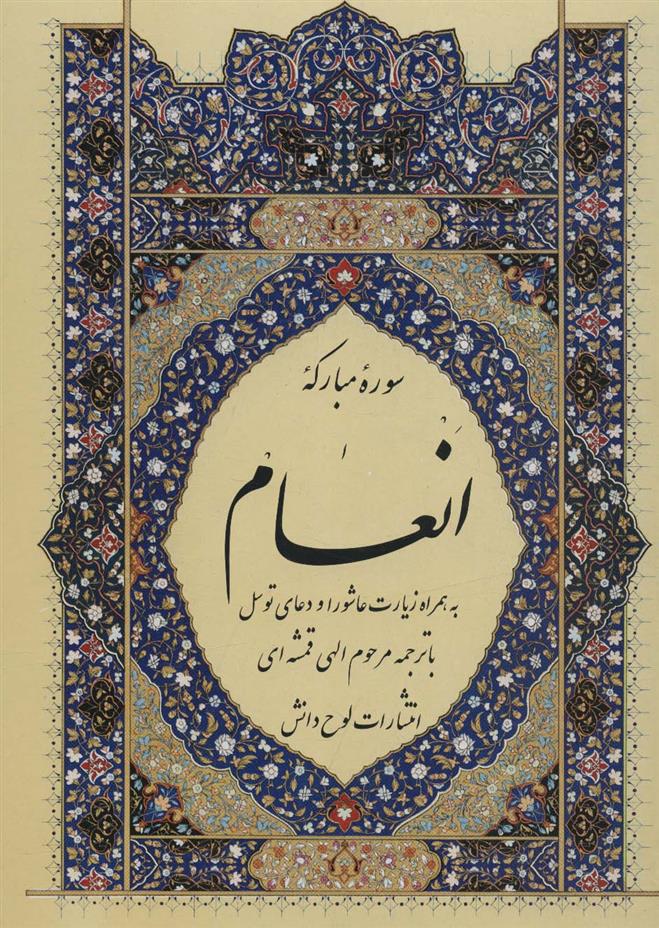 سورهٔ مبارکهٔ
اَنعام
به همراه زیارت عاشورا و دعای توسل
با ترجمه مرحوم الهی قمشه ای
انتشارات لوح دانش